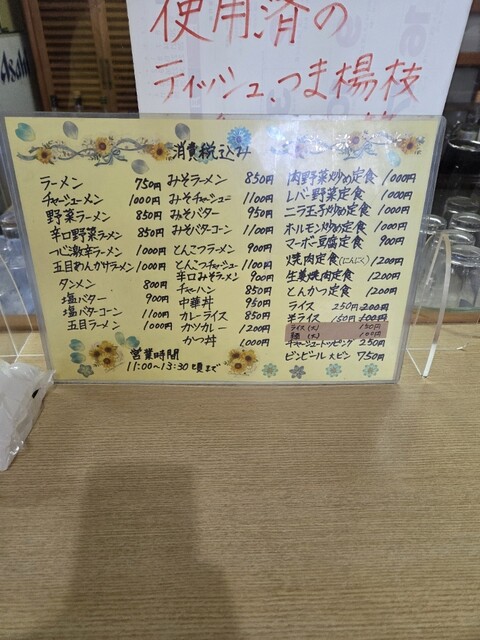 Asahi
使用済の
ティッシュ、つま楊枝
消費税込み
ラーメン 750円
チャーシューメン 1000円
野菜ラーメン 850円
辛口野菜ラーメン 850円
つじ激辛ラーメン 1000円
五目あんかけラーメン 1000円
タンメン 800円
塩バター 900円
塩バターコーン 1100円
五目ラーメン 1000円
営業時間
11:00〜13:30頃まで
みそラーメン 850円
みそチャーシュー 1100円
みそバター 950円
みそバターコーン 1100円
とんこつラーメン 900円
とんこつチャーシュー 1100円
辛口みそラーメン 900円
チャーハン 850円
中華丼 950円
カレーライス 850円
カツカレー 1200円
かつ丼 1000円
肉野菜炒め定食 1000円
レバー野菜定食 1000円
ニラ玉子炒め定食 1000円
ホルモン炒め定食 1000円
マーボー豆腐定食 900円
焼肉定食(にんにく) 1200円
生姜焼肉定食 1200円
とんかつ定食 1200円
ライス 250円 200円
半ライス 150円 100円
ライス (大) 150円
麺 (大) 100円
チャーシュートッピング 250円
ビンビール 大ビン 750円